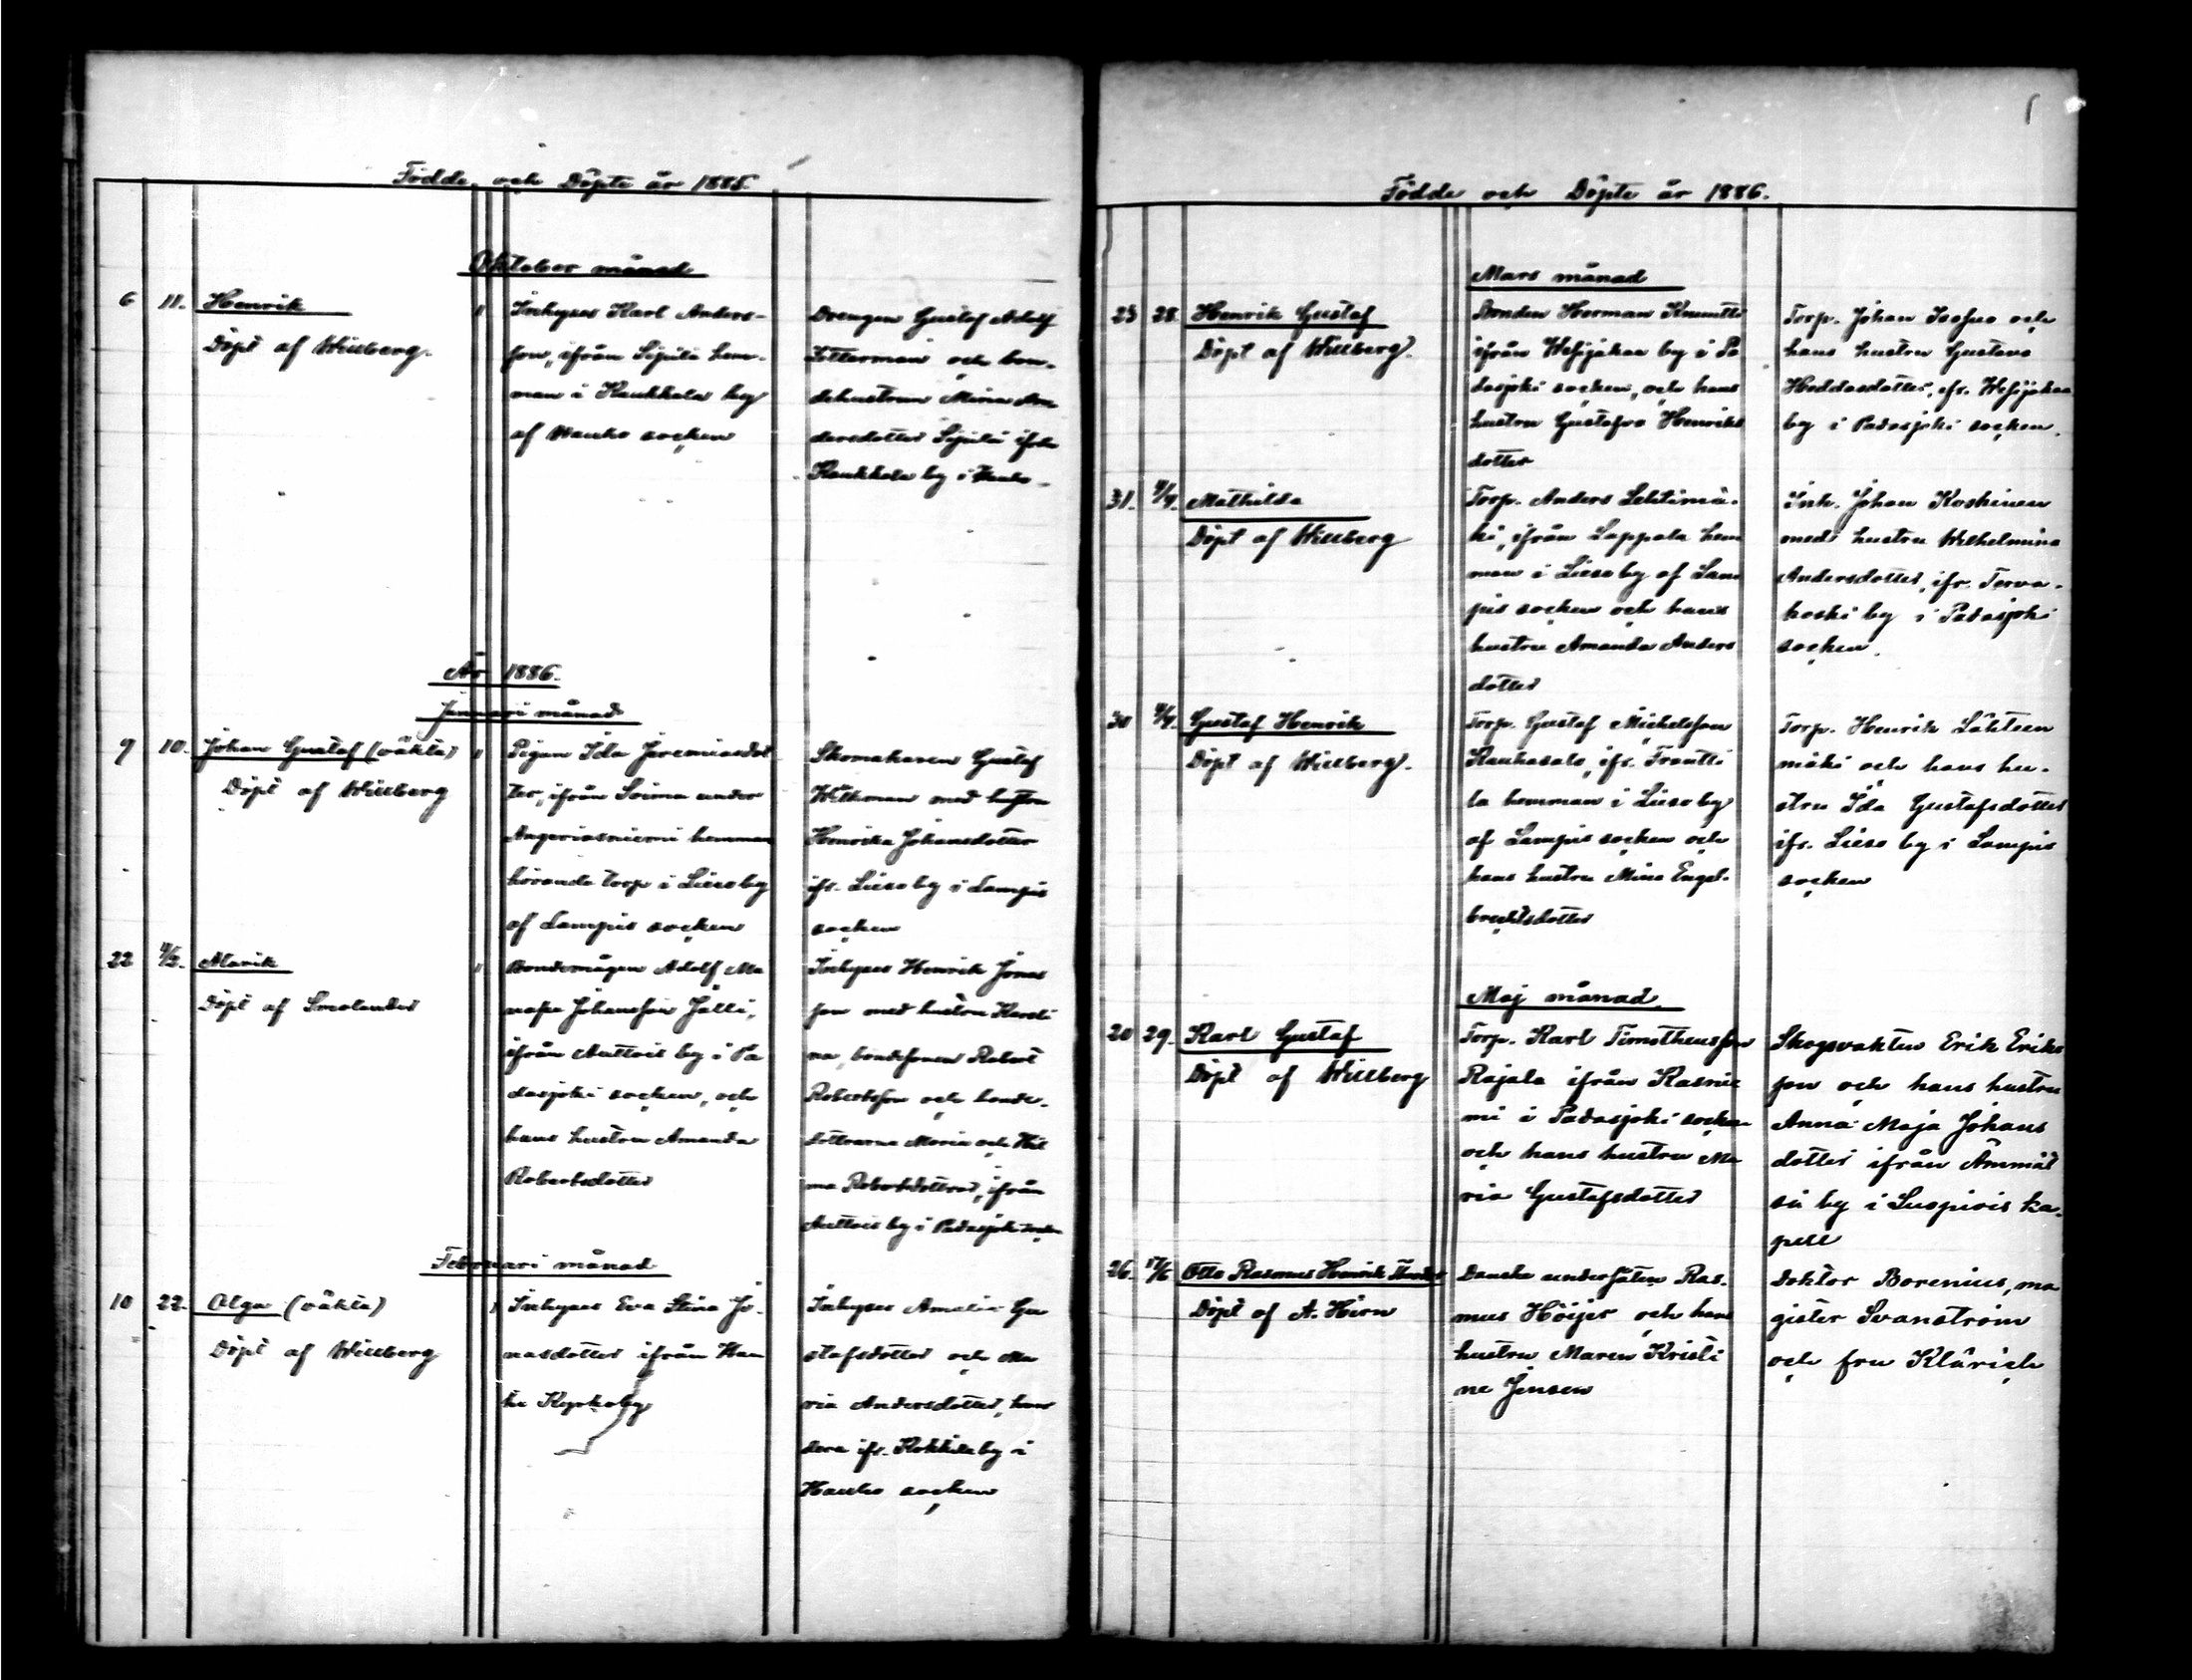 Födde och Döpte år 1885.
Oktober månad
6 11. Henrik
Döpt af Willberg.
Inhyses Karl Anders-
son, ifrån Sipilä hem-
man i Kukkola by
af Hauho socken
Drengen Gustaf Adolf
och bon-
dehustrun Miina An-
dersdotter Sipilä ifrån
by i Hauho
År 1886.
Januari månad
9 10. Johan Gustaf (oäkta)
Döpt af Willberg
Pigan Ida Jeremiasdot
ter, ifrån Soima under
Angeriasniemi hemman
hörande torp i Lieso by
af Lampis socken
Skomakaren Gustaf
Wilkman med hustru
Henrika Johansdotter
ifr. Lieso by i Lampis
socken
22 4/2. Alarik
Döpt af Smolander
Bondemågen Adolf Ma
nasse Johansson Jälli,
ifrån Auttois by i Pa
dasjoki socken, och
hans hustru Amanda
Robertsdotter
Inhyses Henrik Jonas
son med hustru Karoli
na, bondesonen Robert
Robertsson och bonde-
döttrarna Maria och Hil
ma Robertsdöttrar, ifrån
Auttois by i Padasjoki socken
Februari månad
10 22. Olga (oäkta)
Döpt af Willberg
Inhyses Eva Stina Jo-
nasdotter ifrån Hau
ho by
Inhyses Amalia Gu
stafsdotter och Ma
ria Andersdotter, har
dera ifr. by i
Hauho socken
Födde och Döpte år 1886.
Mars månad
23 28. Henrik Gustaf
Döpt af Willberg.
Bonden Herman Knuutti
ifrån Wesijakaa by i Pa
dasjoki socken, och hans
hustru Gustafva Henriks
dotter
Torp. Johan Josefus och
hans hustru Gustava
ifr. Wesijakaa
by i Padasjoki socken.
31. 4/4. Mathilda
Döpt af Willberg
Torp. Anders Lehtimä-
ki, ifrån Lappola hem
man i Lieso by af Lam
pis socken och hans
hustru Amanda Anders
dotter
Inh. Johan Koskinen
med hustru Wilhelmina
Andersdotter, ifr. Torva-
koski by i Padasjoki
socken.
30 4/4. Gustaf Henrik
Döpt af Willberg.
Torp. Gustaf Mickelsson
Kaukasalo, ifr. Frantti
la hemman i Lieso by
af Lampis socken och
hans hustru Mina Engel-
brechtsdotter
Torp. Henrik Lähteen
mäki och hans hu-
stru Ida Gustafsdotter
ifr. Lieso by i Lampis
socken
Maj månad.
20 29. Karl Gustaf
Döpt af Willberg
Torp. Karl Timotheusson
Rajala ifrån Kasnie
mi i Padasjoki socken
och hans hustru Ma
ria Gustafsdotter
Skogsvakten Erik Eriks
son och hans hustru
Anna Maja Johans
dotter ifrån Ämmät
sä by i Luopiois ka-
pell
26. 17/6 Otto Rasmus Henrik
Döpt af A. Hirn
Danska undersåten Ras-
mus Höijer och hans
hustru Maren Kristi
ne Jensen
Doktor Borenius, ma
gister Svanström
och fru Klärich